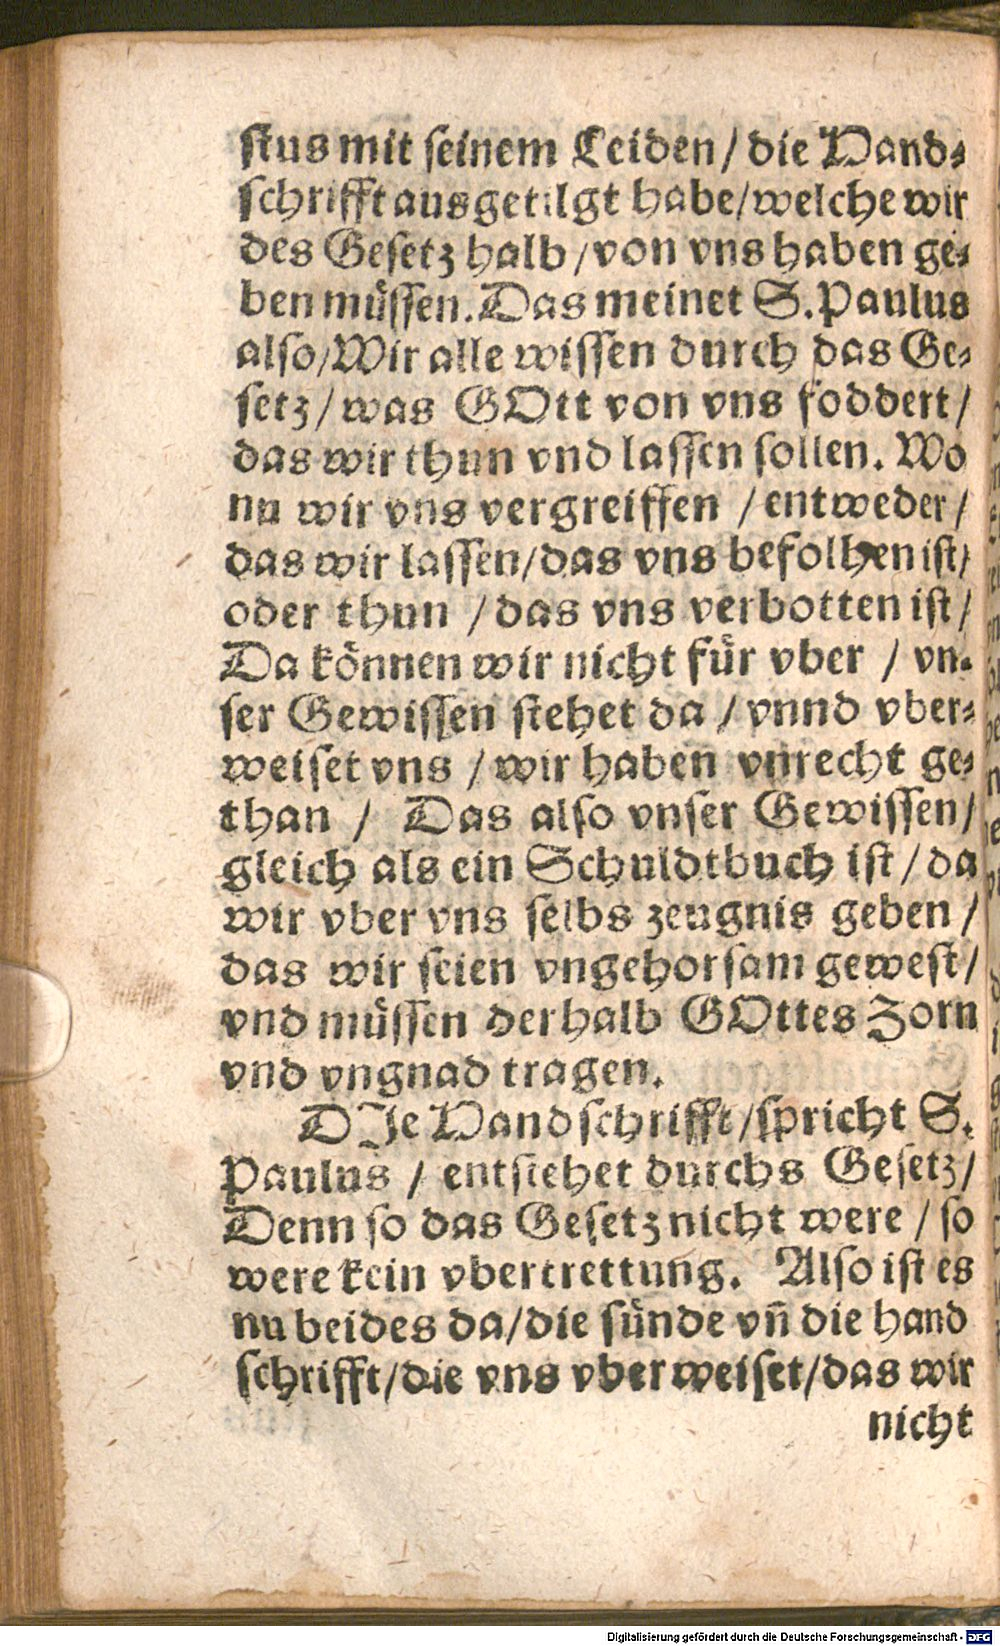 stus mit seinem Leiden / die Hand⸗
schrifft ausgetilgt habe / welche wir
des Gesetz halb / von vns haben ge⸗
ben müssen. Das meinet S. Paulus
also / Wir alle wissen durch das Ge⸗
setz / was GOtt von vns foddert /
das wir thun vnd lassen sollen. Wo
nu wir vns vergreiffen / entweder /
das wir lassen / das vns befolhen ist /
oder thun / das vns verbotten ist /
Da können wir nicht für vber / vn⸗
ser Gewissen stehet da / vnnd vber⸗
weiset vns / wir haben vnrecht ge⸗
than / Das also vnser Gewissen /
gleich als ein Schuldtbuch ist / da
wir vber vns selbs zeugnis geben /
das wir seien vngehorsam gewest /
vnd müssen derhalb GOttes Zorn
vnd vngnad tragen.
DIe Handschrifft / spricht S.
Paulus / entstehet durchs Gesetz /
Denn so das Gesetz nicht were / so
were kein vbertrettung. Also ist es
nu beides da / die sünde vñ die hand
schrifft / die vns vberweiset / das wir
nicht
Digitalisierung gefördert durch die Deutsche Forschungsgemeinschaft - DFG